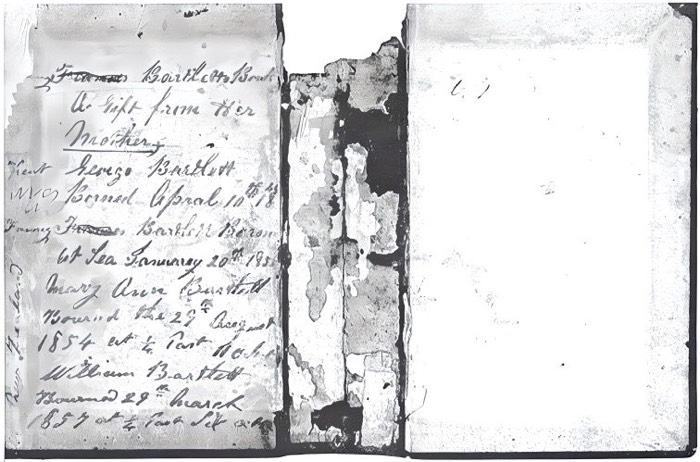 Frances Bartletts Book
A Gift from Her
Mother
George Bartlett
Borned Apral 10th 18
Fanny Frances Bartlett Boron
at Sea Januarey 20th 185
Mary Ann Bartlett
Bourned the 29th August
1854 at ¼ Past
William Bartlett
Bourned 29th March
1857 at ½ Past